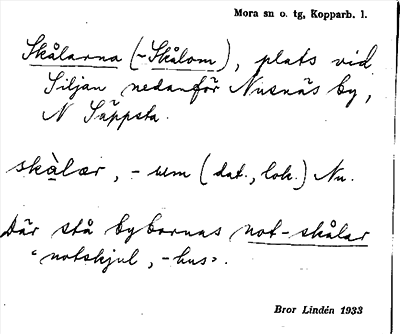 Mora sn o. tg, Kopparb. l.
Skålarna (~Skålom), plats vid
Siljan nedanför Nusnäs by,
N Säppsta.
skàlær, -um (dat., lok.) Nu.
Där stå bybornas not-skålar
"notskjul, -hus".
Bror Lindén 1933